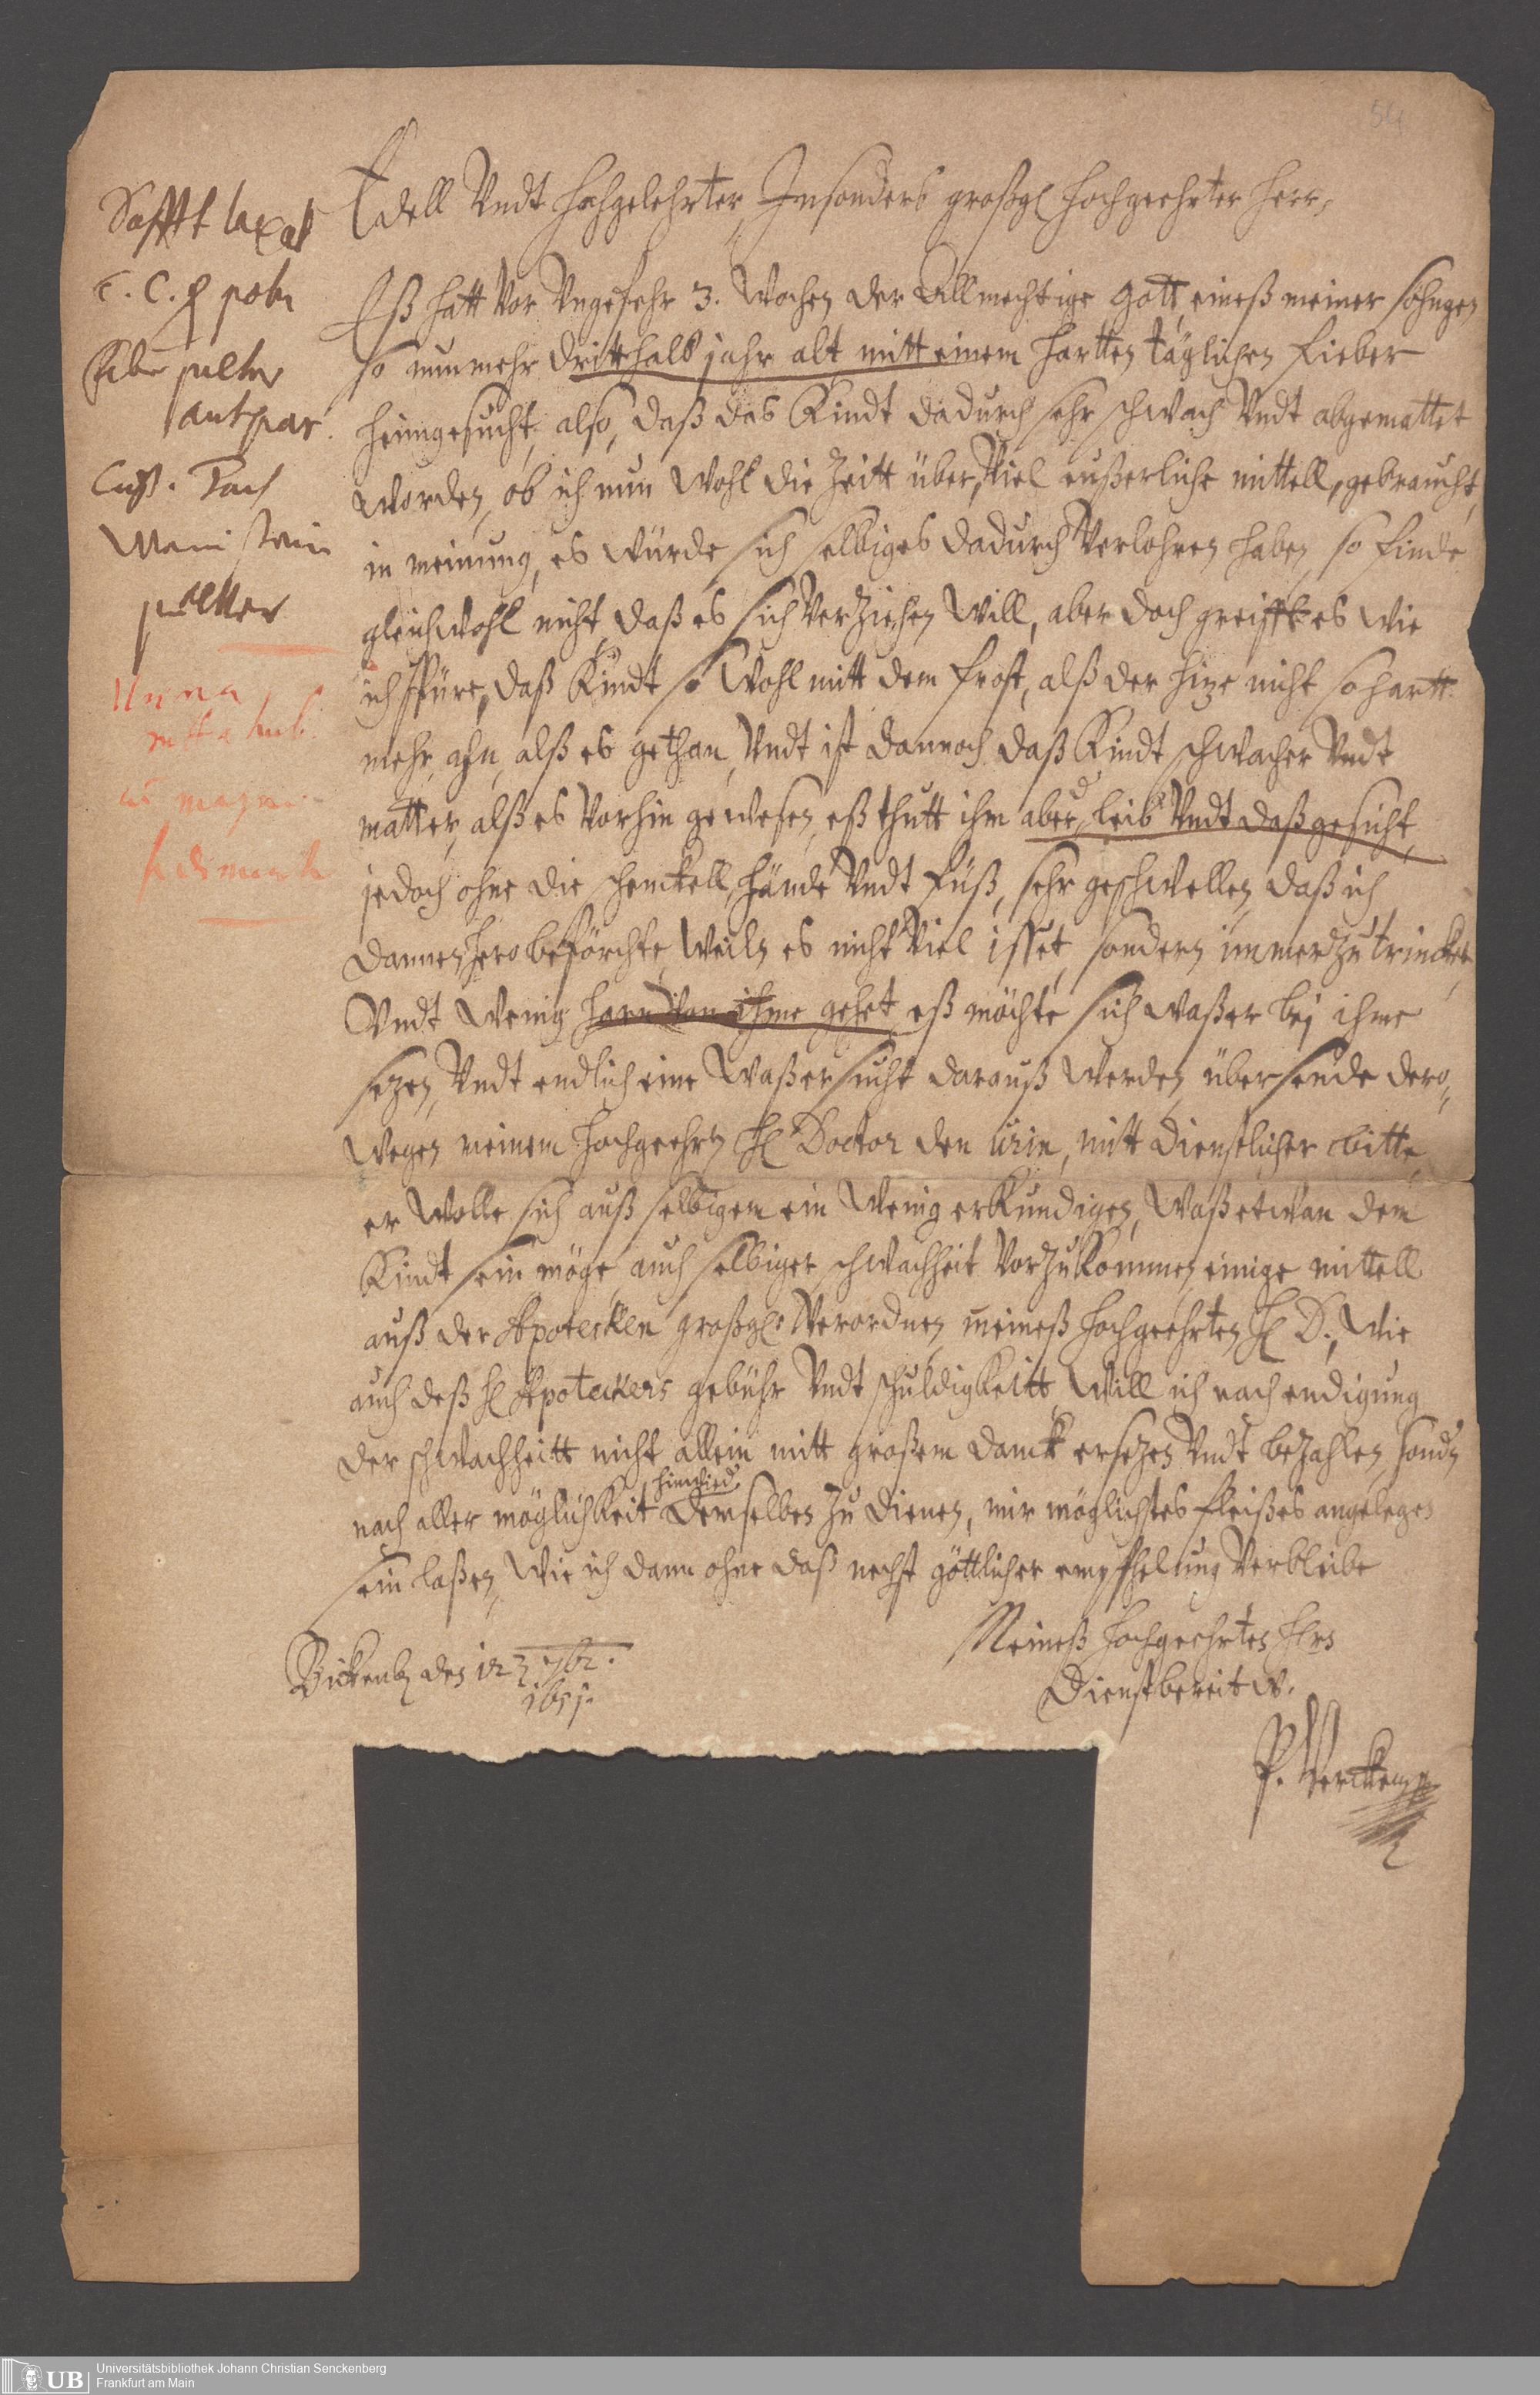 54
Edell Vndt Hochgelehrter, Insonders großgl hochgeehrter Herr,
Eß hatt Vor Vngefehr 3. Wochen der Allmechtige Gott, eineß meiner söhngen
so nunmehr dritthalb jahr alt mitt einem hartten täglichen fieber
heimgesucht, also, daß das Kindt dadurch sehr schwach Vndt abgemattet
worden, ob ich nun Wohl die Zeitt über, Viel eußerliche mittell, gebraucht,
in meinung, es würde sich selbiges dadurch Verlohren haben, so finde
gleichwohl nicht, daß es sich Verziehen Will, aber doch greifft es wie
ich spüre, daß Kindt so Wohl mitt dem frost, alß der hize nicht so hartt
mehr ahn, alß es gethan, Vndt ist dannoch daß Kindt schwacher Vndt
matter, alß es Vorhin gewesen, eß thutt ihm aber d leib Vndt daß gesicht,
jedoch ohne die schenckell, hände Vndt füß, sehr geschwellen, daß ich
dannenhero beförchte, Weiln es nicht Viel isset, sondern immerzu trincket,
Vndt Wenig harn Von ihme gehet, eß möchte sich waßer bej ihme
sezen, Vndt endlich eine Waßersucht darauß Werden, übersende dero,
Wegen meinem hochgeehrten H Doctor den Urin, mitt dienstlicher bitte,
er Wolle sich auß selbigem ein Wenig erkundigen, Waß etwan dem
Kindt sein möge, auch selbiger schwachheit Vorzukommen einige mittell
auß der Apotecken großgl. Verordnen, meineß hochgeehrten H D., Wie
auch deß H Apoteckers gebühr Vndt schuldigkeitt, Will ich nach endigung
der schwachheitt nicht allein mitt großem danck ersezen Vndt bezahlen, sondn
hinwied
nach aller möglichkeit demselben zu dienen, mir möglichstes fleißes angelegen
sein laßen, Wie ich dann ohne daß nechst göttlicher empfhelung Verbleibe
Meineß hochgeehrten Hrn
Dienstbereitw.
Bickenb den 12 7br.
1651.
Safft laxat
C. C. pp
pulver
antspas
pulver
Urina
sediment
Universitätsbibliothek Johann Christian Senckenberg
Frankfurt am Main
UB